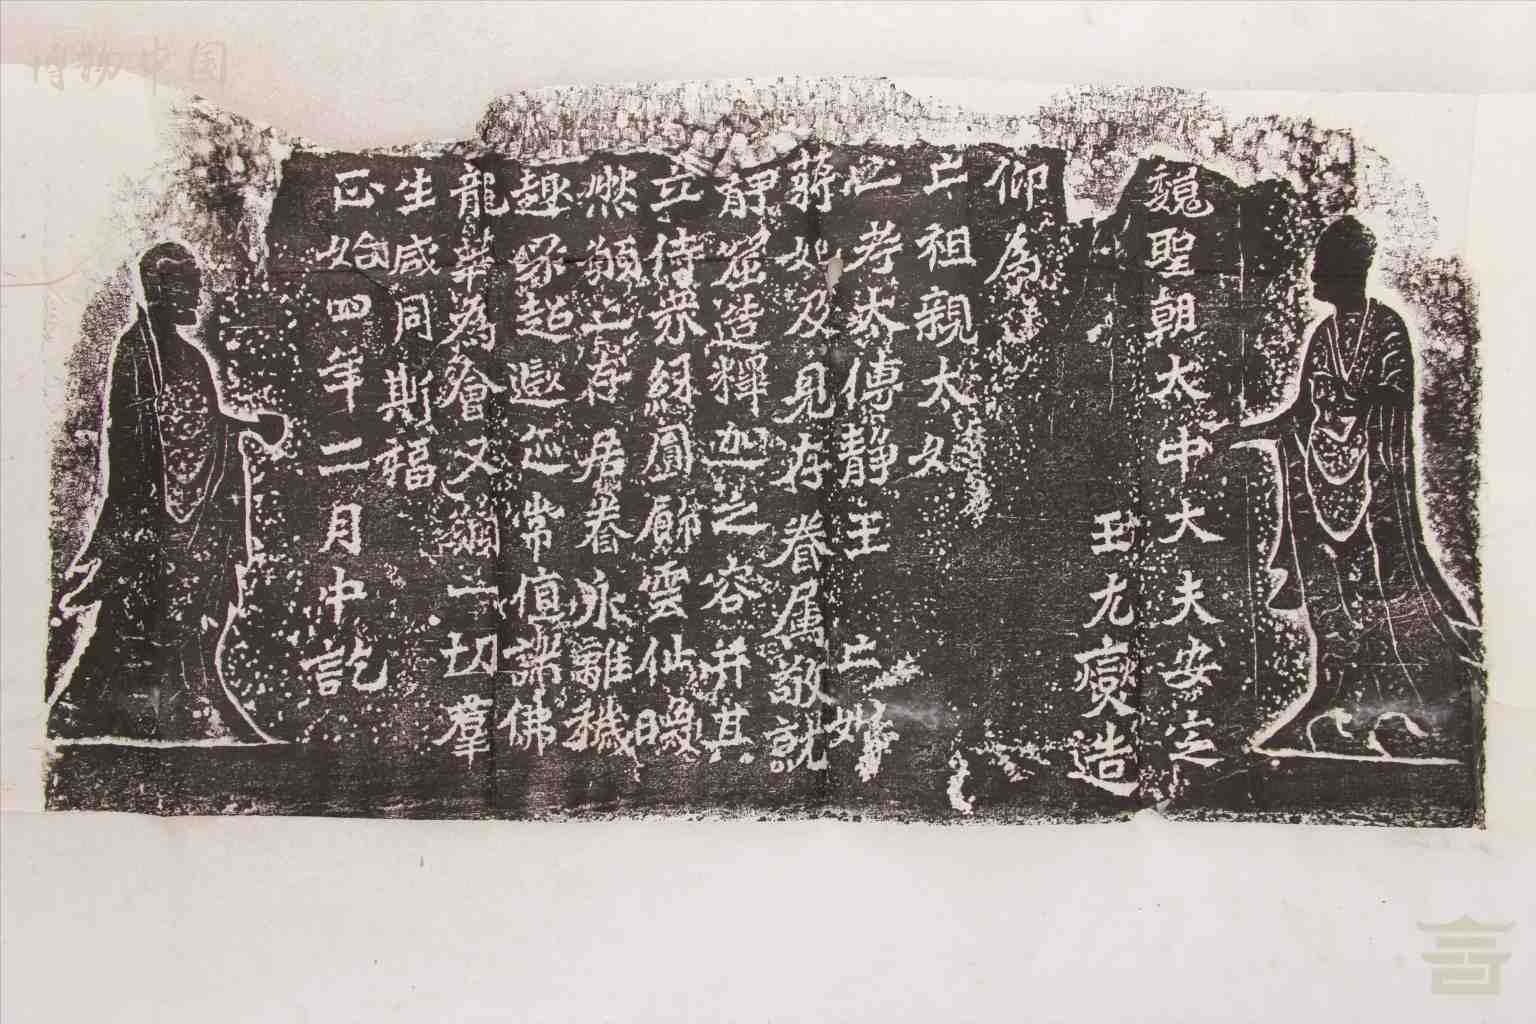 魏聖朝太中大夫安定
王尤燮造
仰為
亡祖親太妃
亡考太傅静王 亡妣
蔣妃及見存眷属敬就
静窟造釋迦之容并其
立侍衆綵圓厨雲仙暎
然願亡存居眷永離穢
趣昇超遐迩常值諸佛
龍華為會又願一切羣
生咸同斯福
正始四年二月中訖
博物中国